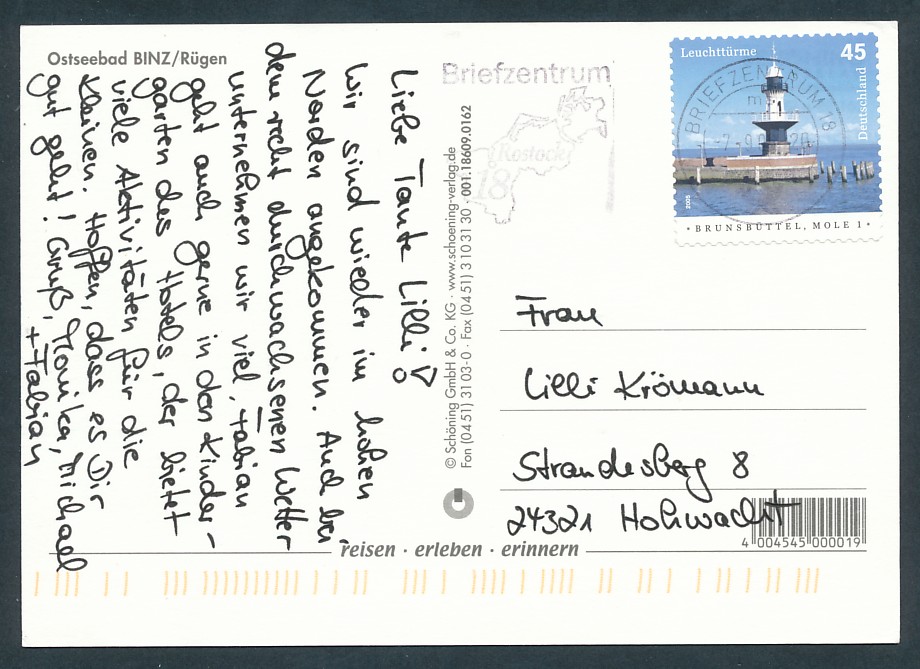 Ostseebad BINZ/Rügen
Liebe Tante Lilli!
Wir sind wieder im hohen
Norden angekommen. Auch bei
dem recht durchwachsenen Wetter
unternehmen wir viel, Fabian
geht auch gerne in den Kinder-
garten des Hotels, der bietet
viele Aktivitäten für die
Kleinen. Hoffen, dass es Dir
gut geht! Gruß, Monika, Michael
+ Fabian
© Schöning GmbH & Co. KG · www.schoening-verlag.de
Fon (04 51) 31 03-0 · Fax (04 51) 3 10 31 30 · 001.18609.0162
Briefzentrum
Rostock
18
Leuchttürme
45
Deutschland
2005
BRIEFZENTRUM 18
• BRUNSBÜTTEL, MOLE 1 •
Frau
Lilli Krömann
Strandesberg 8
24321 Hohwacht
4 004545 000019
reisen · erleben · erinnern